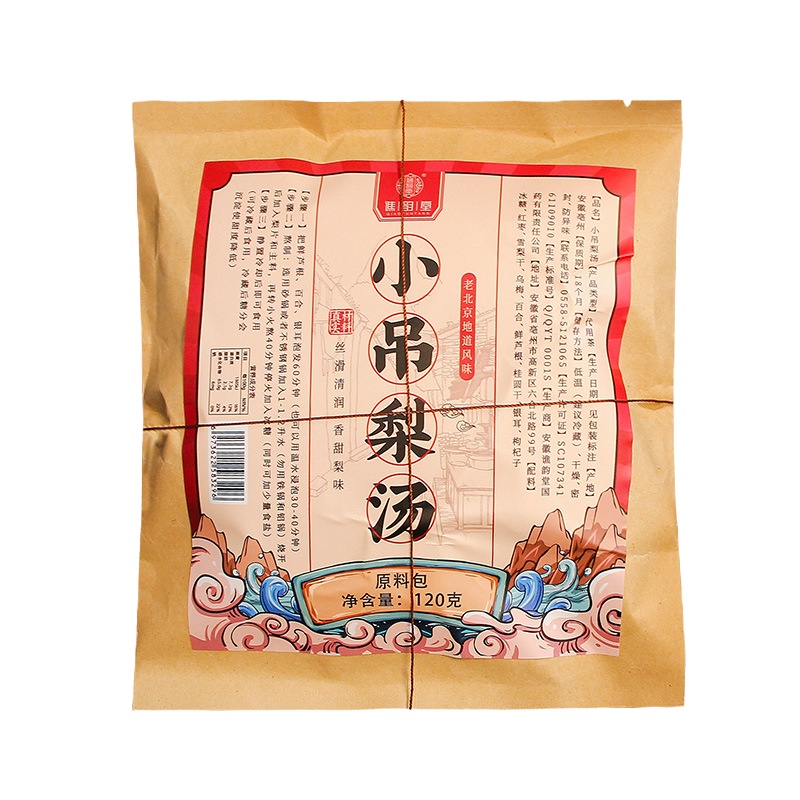 谯韵堂
QIAOYUNTANG
小吊梨汤
老北京地道风味
真材实料
丝滑清润 香甜梨味
【品名】小吊梨汤【产品类型】代用茶【生产日期】见包装标注【产地】
安徽亳州【保质期】18个月【储存方法】低温（建议冷藏），干燥、密
封、防异味【联系电话】0558-5121065【生产许可证】SC107341
61109010【生产标准号】Q/QYT 0001S【生产商】安徽谯韵堂国
药有限责任公司【地址】安徽省亳州市高新区六合北路99号【配料】
冰糖、红枣、雪梨干、乌梅、百合、鲜芦根、桂圆干、银耳、枸杞子
【步骤一】把鲜芦根、百合、银耳泡发60分钟（也可以用温水浸泡30-40分钟）
【步骤二】熬制：选用砂锅或者不锈钢锅加入1-1.2升水（勿用铁锅和铝锅）烧开
后加入梨片和主料，再转小火熬40分钟停火加入冰糖（同时可加少量食盐）
【步骤三】静置冷却后即可食用
（可冷藏后食用，冷藏后糖分会
沉淀使甜度降低）
营养成分表
项目 每100g NRV%
6973622863276
原料包
净含量：120克